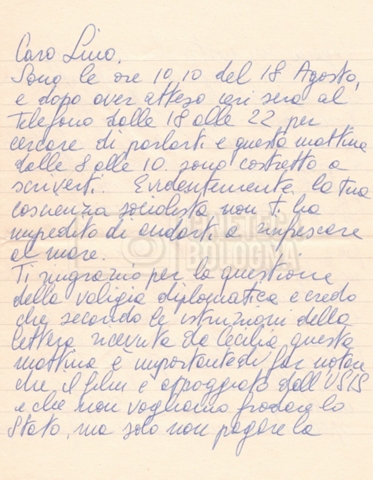 Caro Lino,
Sono le ore 10,10 del 18 Agosto,
e dopo aver atteso ieri sera al
telefono dalle 18 alle 22 per
cercare di parlarti e questa mattina
dalle 8 alle 10 sono costretto a
scriverti. Evidentemente, la tua
coscienza socialista non ti ha
impedito di andarti a rinfrescare
al mare.
Ti ringrazio per la questione
della valigia diplomatica e credo
che secondo le istruzioni della
lettera ricevuta da Cecilia questa
mattina è importante di far notare
che il film è appoggiato dall'USIS
e che non vogliamo frodare lo
Stato, ma solo non pagare la
BOLOGNA